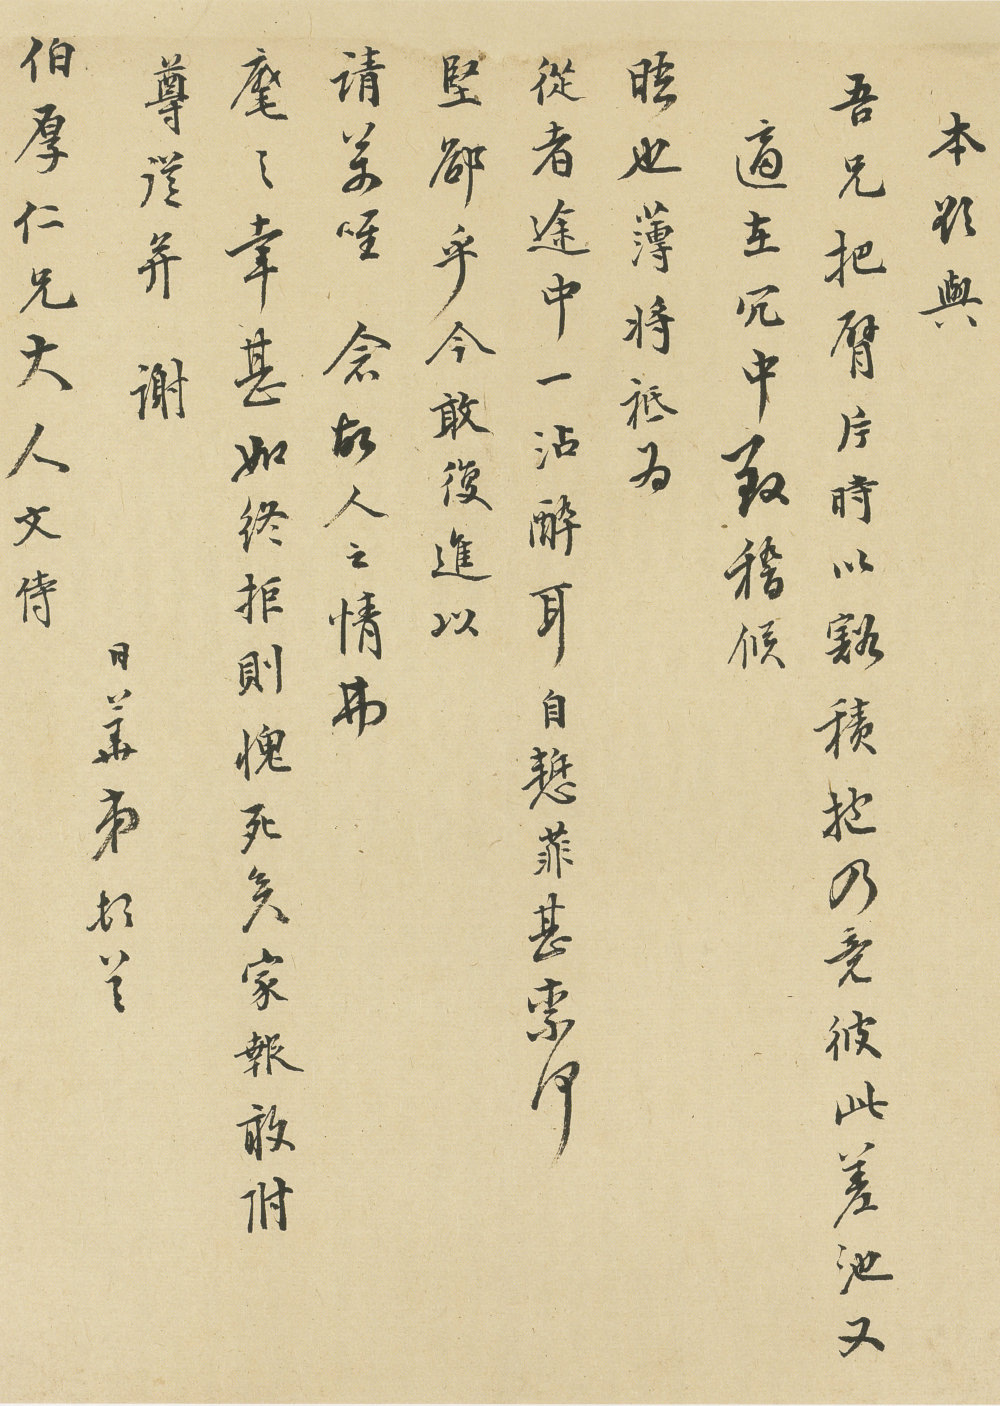 本欲與
吾兄把臂片時以豁積抱乃竟彼此差池又
適在冗中致稽候
晤也薄將祗為
從者途中一沾醉耳自慙菲甚柰何
堅卻乎今敢復進以
請萬唯 念故人之情弗
麾之幸甚如終拒則愧死矣家報敢附
尊從并 謝
伯厚仁兄大人文侍
日華弟頓首